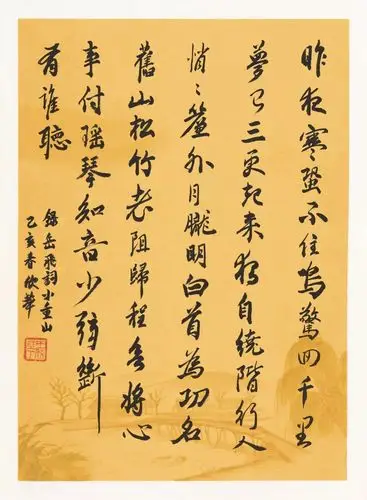 昨夜寒蛩不住鳴驚回千里
夢已三更起來獨自繞階行人
悄〻簾外月朧明白首為功名
舊山松竹老阻歸程欲將心
事付瑤琴知音少弦斷
有誰聽
錄岳飛詞小重山
乙亥春欣華